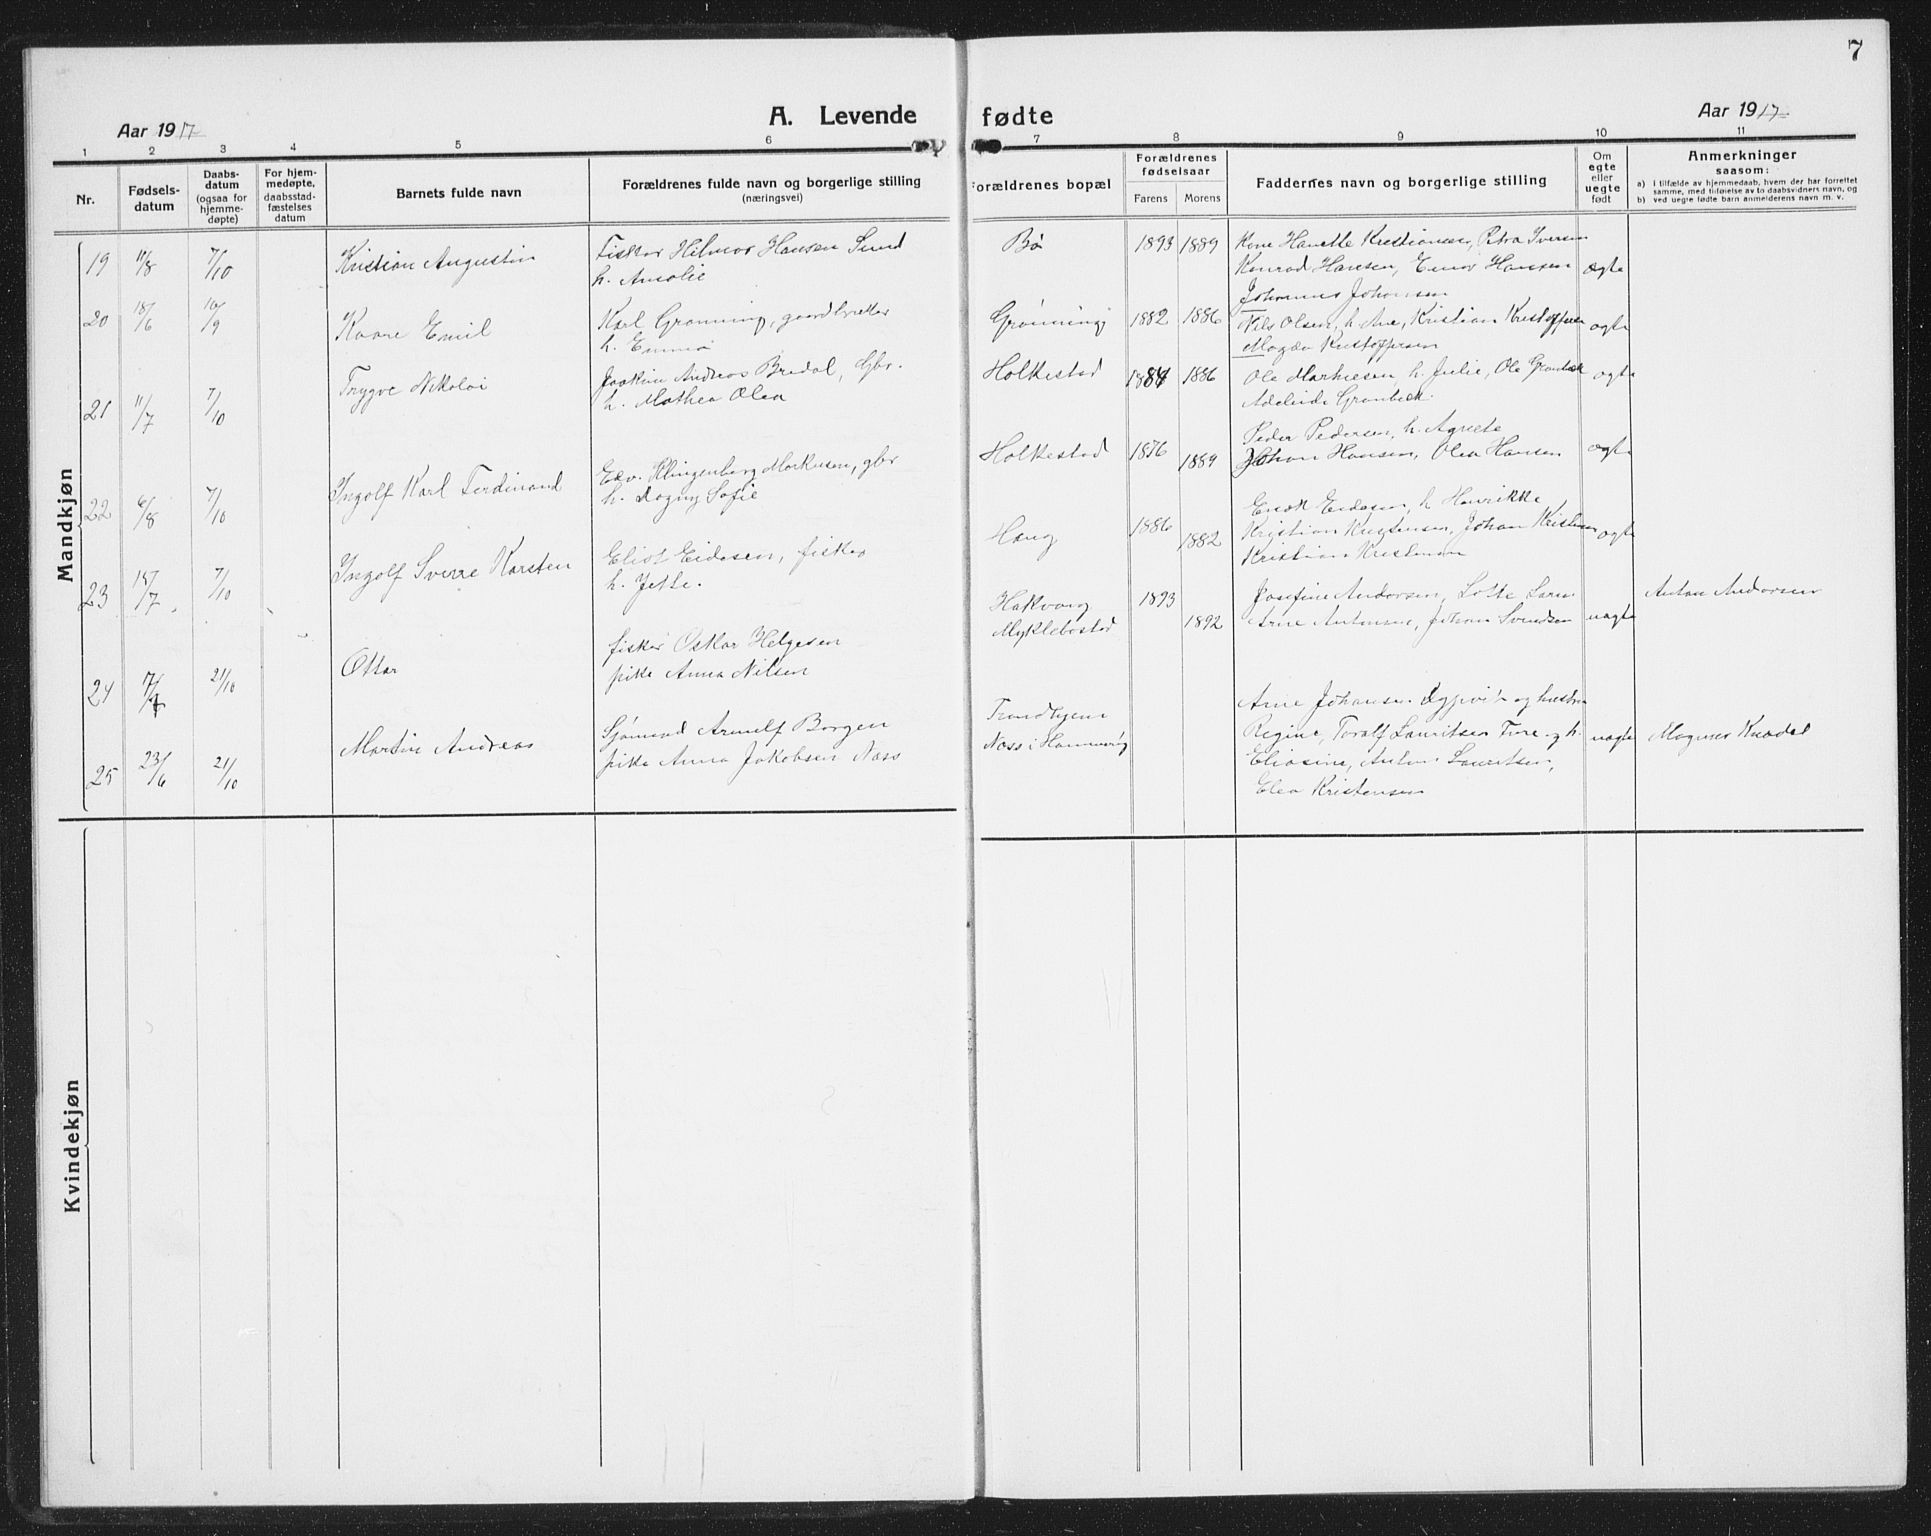 7
A. Levende fødte
Aar 1917
Aar 1917
1 2 3 4 5 6 7 8 9 10 11
Nr.
Fødsels-
datum
Daabs-
datum
(ogsaa for
hjemme-
døpte)
For hjem-
medøpte,
daabsstad-
fæstelses
datum
Barnets fulde navn
Forældrenes fulde navn og borgerlige stilling
(næringsvei)
Forældrenes bopæl
Forældrenes
fødselsaar
Farens Morens
Faddernes navn og borgerlige stilling
Om
egte
eller
uegte
født
Anmerkninger
saasom:
a) i tilfælde av hjemmedaab, hvem der har forrettet
samme, med tilføielse av to daabsvidners navn, og
b) ved uegte fødte barn anmelderens navn m. v.
Mandkjøn
19 11/8 7/10 Kristian Augustin
Fisker Hilmar Hansen Sund
h. Amalie
Bø 1893 1889
Kone Hanette Kristiansen, Petra Iversen
Konrad Hansen, Einar Hansen
Johannes Johansen
ægte
20 18/6 16/9 Kaare Emil
Karl Grønning, gaardbruker
h. Emma
Grønning 1882 1886
Nils Olsen, h. Ane, Kristian Kristoffersen
Magda Kristoffersen
ægte
21 11/7 7/10 Trygve Nikolai
Joakim Andreas Bredal, Gbr.
h. Mathea Olea
Holkestad 1884 1886
Ole Markusen, h. Julie, Ole Grønbæk
Adelinde Grønbeck
ægte
22 6/8 7/10 Ingolf Karl Ferdinand
Edv. Klingenberg Markusen, gbr
h. Dagny Sofie
Holkestad 1876 1889
Peder Pedersen, h. Agnete
Johan Hansen, Olea Hansen
ægte
23 15/7 7/10 Ingolf Sverre Karsten
Eliot Eidesen, fisker
h. Jette.
Haug 1886 1882
Enok Eidesen, h Henrikke
Kristian Kristensen, Johan Kristensen
Kristian Kristensen
ægte
24 7/7 21/10 Ottar
fisker Oskar Helgesen
pike Anna Nilsen
Hakvaag
Myklebostad
1893 1892
Josefine Andersen, Lotte
Arne Antonsen, Johan Svendsen
uægte
Anton Andersen
25 23/6 21/10 Martin Andreas
Sjømand Arnulf Borgen
pike Anna Jakobsen Næss
Trondhjem
Næss i Hammerøy
Arne Johansen og hustru
Regine, Toralf Lauritsen Ture og h.
Eliasine, Anton Lauritsen,
Elea Kristensen
uægte
Magnus Knædal
Kvindekjøn